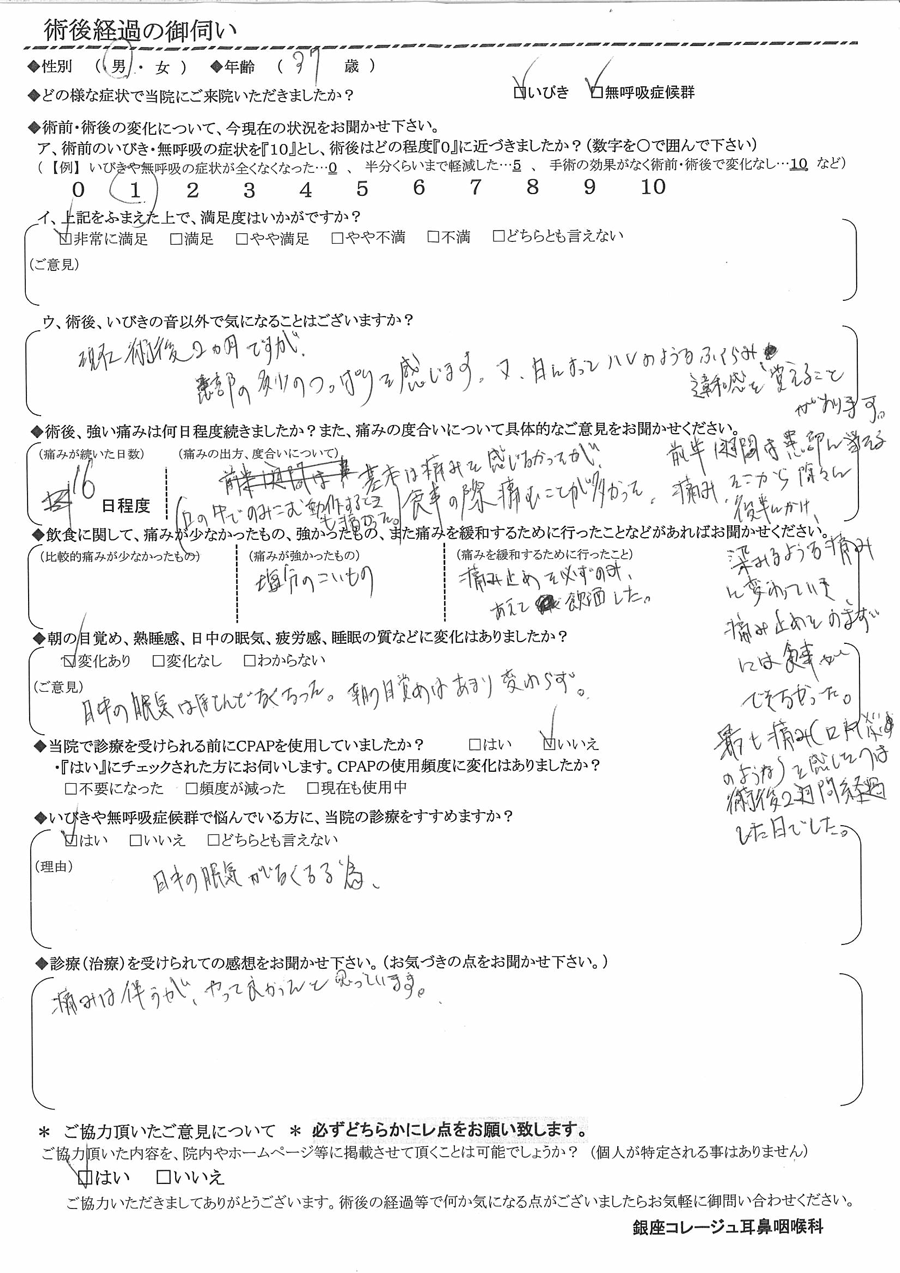 術後経過の御伺い
◆性別 (男・女) ◆年齢 (37 歳)
◆どの様な症状で当院にご来院いただきましたか? ☑いびき ☑無呼吸症候群
◆術前・術後の変化について、今現在の状況をお聞かせ下さい。
ア、術前のいびき・無呼吸の症状を『10』とし、術後はどの程度『0』に近づきましたか?(数字を〇で囲んで下さい)
(【例】いびきや無呼吸の症状が全くなくなった…0 、 半分くらいまで軽減した…5 、 手術の効果がなく術前・術後で変化なし…10 など)
0 1 2 3 4 5 6 7 8 9 10
イ、上記をふまえた上で、満足度はいかがですか?
☑非常に満足 □満足 □やや満足 □やや不満 □不満 □どちらとも言えない
(ご意見)
ウ、術後、いびきの音以外で気になることはございますか?
現在術後2ヵ月ですが、
患部の多少のつっぱりを感じます。又、日によってハレのようなふくらみ
違和感を覚えること
があります。
◆術後、強い痛みは何日程度続きましたか?また、痛みの度合いについて具体的なご意見をお聞かせください。
(痛みが続いた日数) (痛みの出方、度合いについて)
16 日程度
基本は痛みを感じなかったが、
食事の際痛むことが多かった。
(口の中でのみこむ動作するとき
も痛かった。)
前半1週間は患部に当る
痛み、そこから除々に
後半にかけ、
染みるような痛み
に変わっていき、
痛み止めをのまず
には食事が
できなかった。
最も痛み(口内炎
のような)を感じたのは
術後2週間経過
した日でした。
◆飲食に関して、痛みが少なかったもの、強かったもの、また痛みを緩和するために行ったことなどがあればお聞かせください。
(比較的痛みが少なかったもの) (痛みが強かったもの) (痛みを緩和するために行ったこと)
塩分のこいもの
痛み止めを必ずのみ、
あえて 飲酒した。
◆朝の目覚め、熟睡感、日中の眠気、疲労感、睡眠の質などに変化はありましたか?
☑変化あり □変化なし □わからない
(ご意見)
日中の眠気はほとんどなくなった。朝の目覚めはあまり変わらず。
◆当院で診療を受けられる前にCPAPを使用していましたか? □はい ☑いいえ
・『はい』にチェックされた方にお伺いします。CPAPの使用頻度に変化はありましたか?
□不要になった □頻度が減った □現在も使用中
◆いびきや無呼吸症候群で悩んでいる方に、当院の診療をすすめますか?
☑はい □いいえ □どちらとも言えない
(理由)
日中の眠気がなくなる為、
◆診療(治療)を受けられての感想をお聞かせ下さい。(お気づきの点をお聞かせ下さい。)
痛みは伴うが、やって良かったと思っています。
* ご協力頂いたご意見について * 必ずどちらかにレ点をお願い致します。
ご協力頂いた内容を、院内やホームページ等に掲載させて頂くことは可能でしょうか? (個人が特定される事はありません)
☑はい □いいえ
ご協力いただきましてありがとうございます。術後の経過等で何か気になる点がございましたらお気軽に御問い合わせください。
銀座コレージュ耳鼻咽喉科